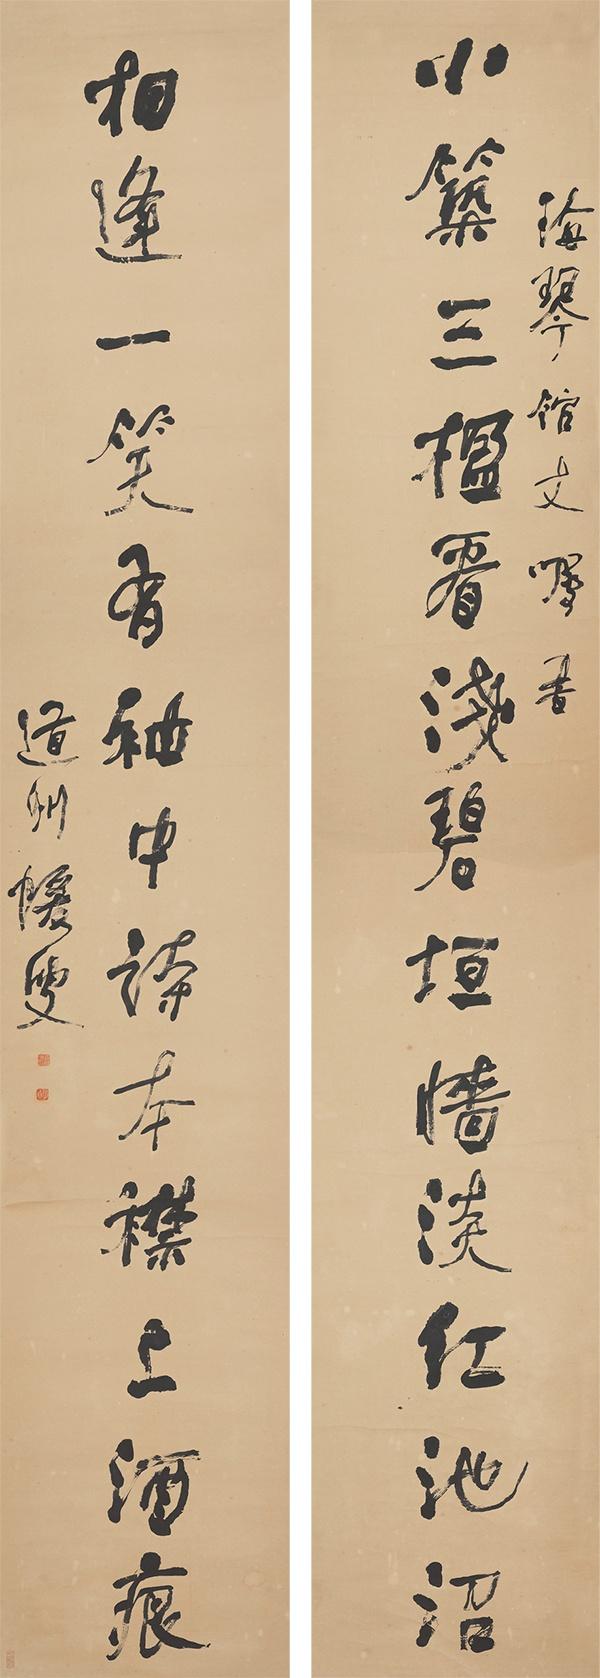 海琴馆丈嘱书
小築三楹看淺碧垣墻淡紅池沼
相逢一笑有袖中詩本襟上酒痕
道州蝯叟